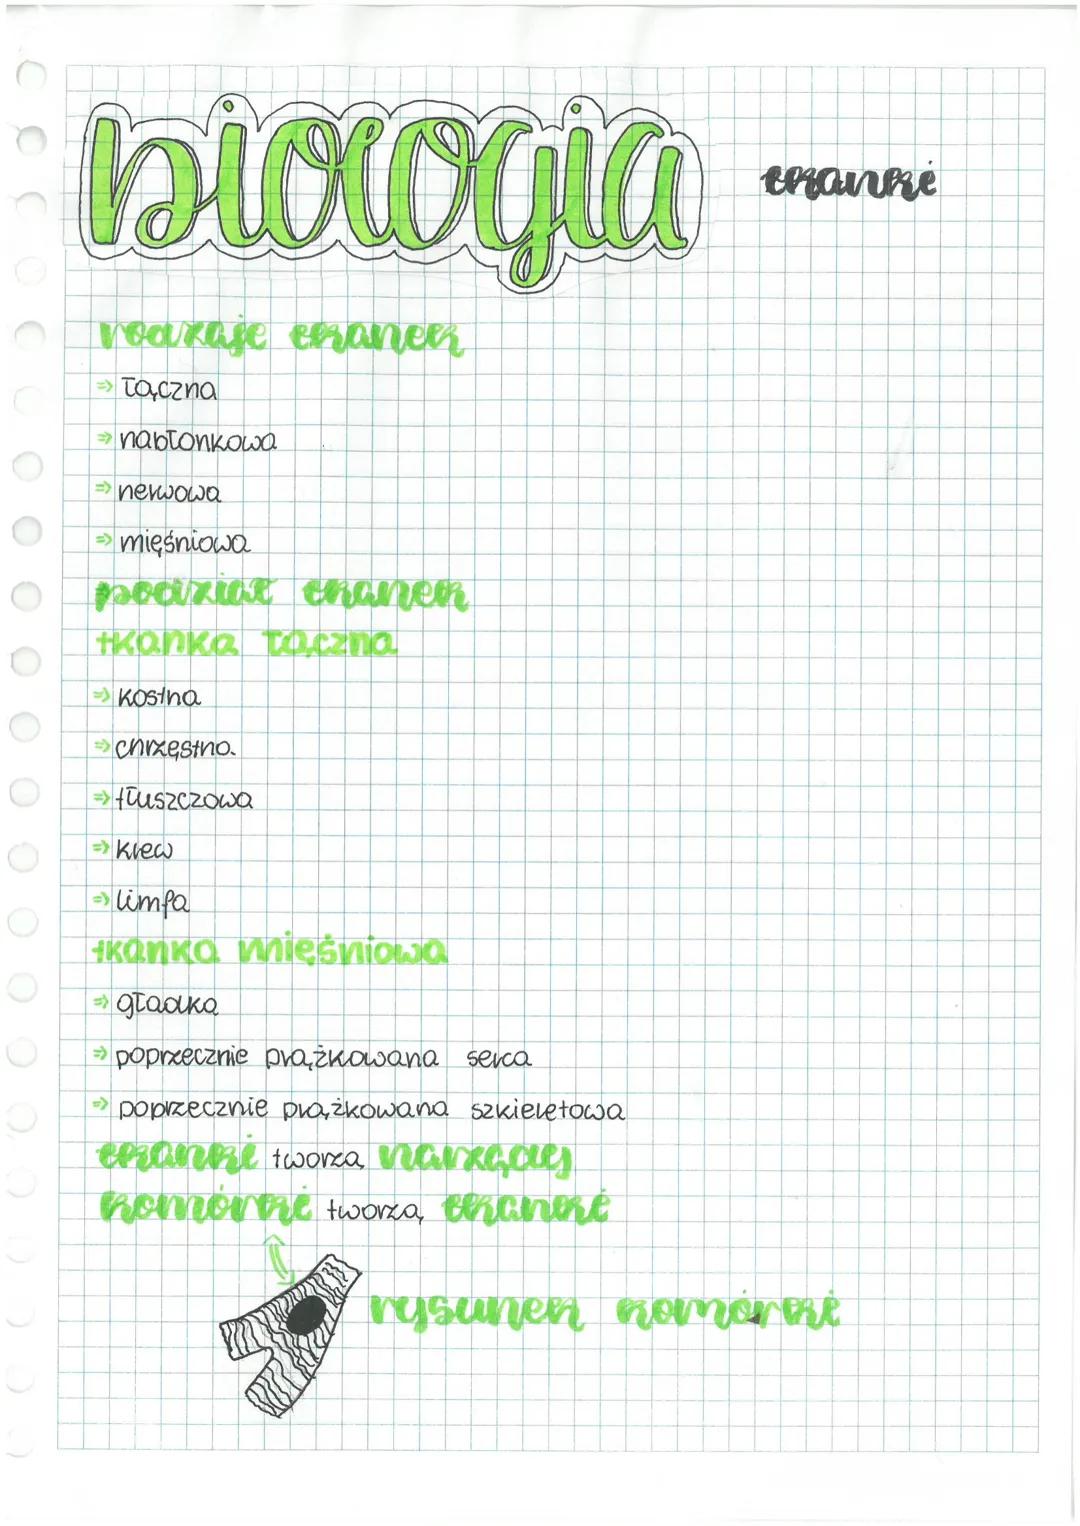 biologia
tkanki
rodzaje tkanek
=> łączna
=> nabłonkowa
=> nerwowa
=> mięśniowa
podział tkanek
tkanka łączna
=> kostna
=> chrzęstna
=> tłuszczowa
=> krew
=> limfa
tkanka mięśniowa
=> gładka
=> poprzecznie prążkowana serca
=> poprzecznie prążkowana szkieletowa
tkanki tworzą narządy
komórki tworzą tkanki
rysunek komórki